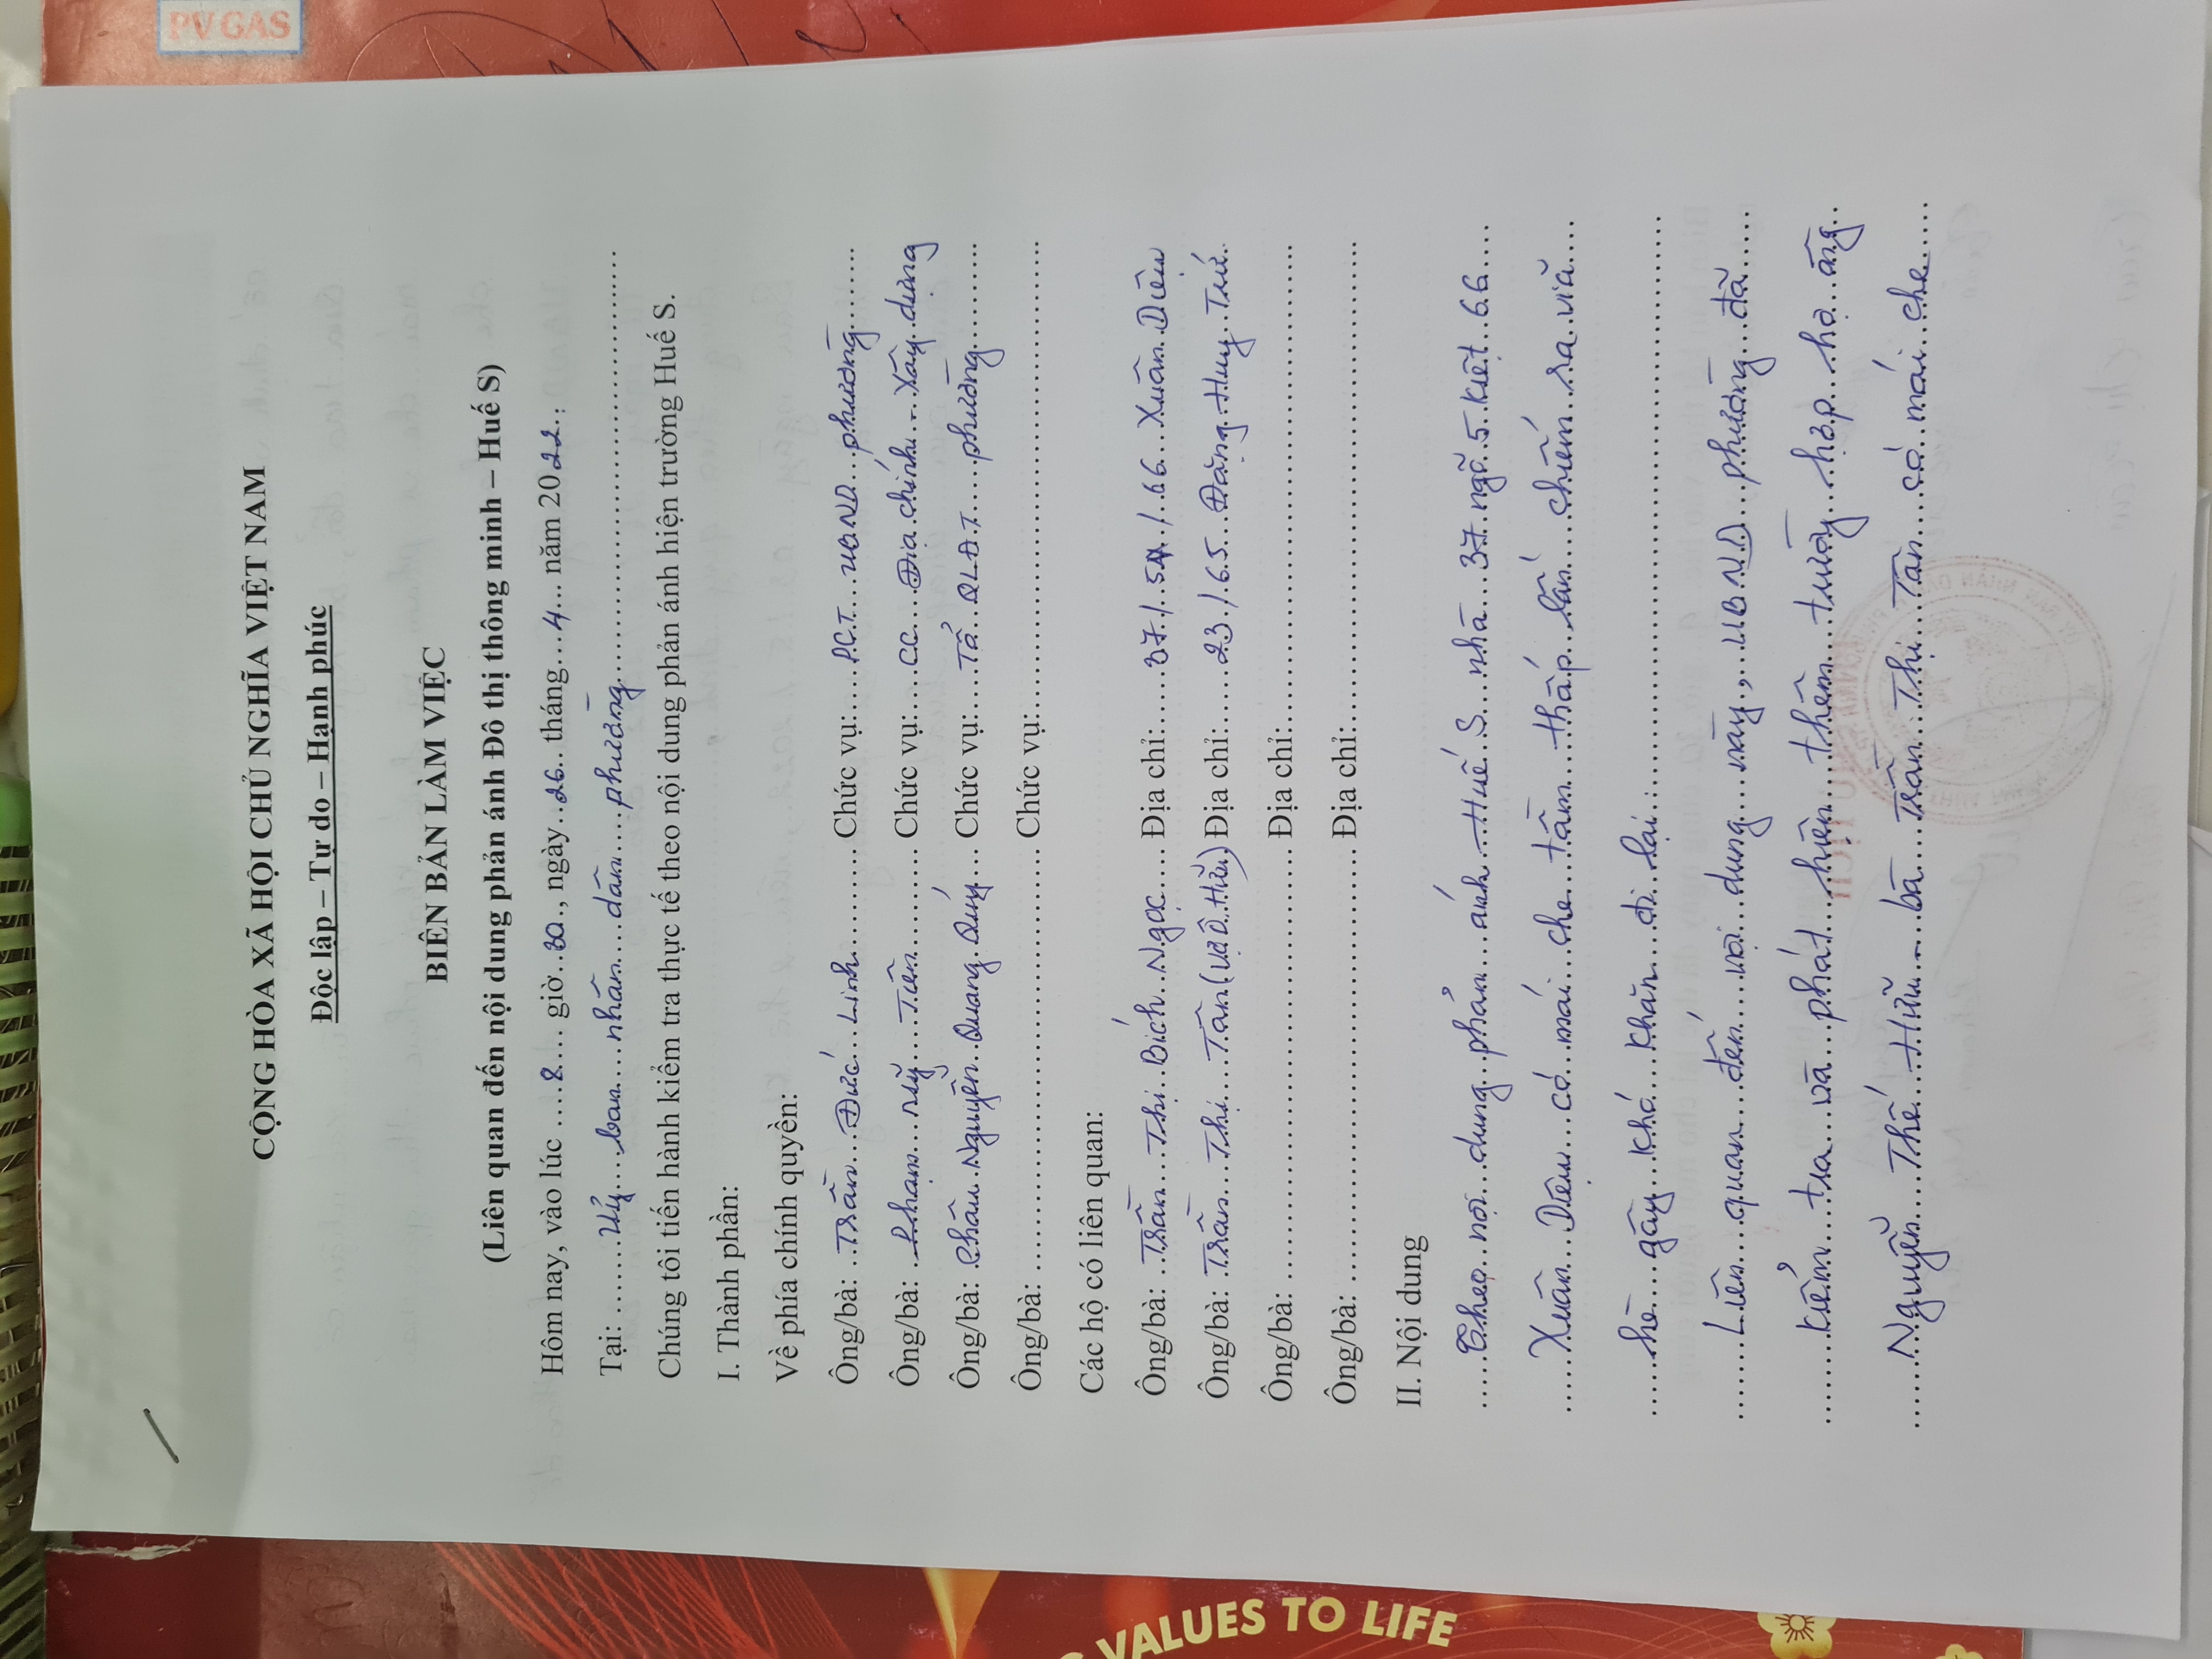 PV GAS
CỘNG HÒA XÃ HỘI CHỦ NGHĨA VIỆT NAM
Độc lập – Tự do – Hạnh phúc
BIÊN BẢN LÀM VIỆC
(Liên quan đến nội dung phản ánh Đô thị thông minh – Huế S)
Hôm nay, vào lúc .....8.... giờ..30., ngày..26.. tháng...4... năm 2022.:
Tại: .......Uỷ...ban...nhân...dân...phường...........
Chúng tôi tiến hành kiểm tra thực tế theo nội dung phản ánh hiện trường Huế S.
I. Thành phần:
Về phía chính quyền:
Ông/bà: ..Trần...Đức...Linh.......... Chức vụ:.....P.C.T...UBND...phường......
Ông/bà: ..Phạm...Mỹ...Tiên.......... Chức vụ:....CC...Địa chính - Xây dựng
Ông/bà: .Phan..Nguyễn..Quang.Quý... Chức vụ:....Tổ..QLĐT....phường..........
Ông/bà: ................................ Chức vụ:................................
Các hộ có liên quan:
Ông/bà: ..Trần...Thị..Bích..Ngọc..... Địa chỉ:......37./.5./.66...Xuân..Diệu
Ông/bà: .Trần...Thị...Tân(vợ ô.Hữu) Địa chỉ:.....23./65...Đặng.Huy.Trứ.
Ông/bà: ................................ Địa chỉ:................................
Ông/bà: ................................ Địa chỉ:................................
II. Nội dung
.....Theo..nội...dung..phản...ánh...Huế.S...nhà..37.ngõ.5.kiệt.66....
.....Xuân...Diệu...có..mái..che..tầm...thấp..lấn...chiếm..ra.vỉa...
.....hè...gây..khó...khăn...đi..lại.:....................
.......Liên...quan...đến...nội..dung...này,..UBND...phường...đã.....
........kiểm...tra...và...phát...hiện...thêm...trường..hợp..hộ..ông..
.......Nguyễn...Thế...Hữu.-..bà...Trần..Thị...Tân...có.mái..che.....
VALUES TO LIFE